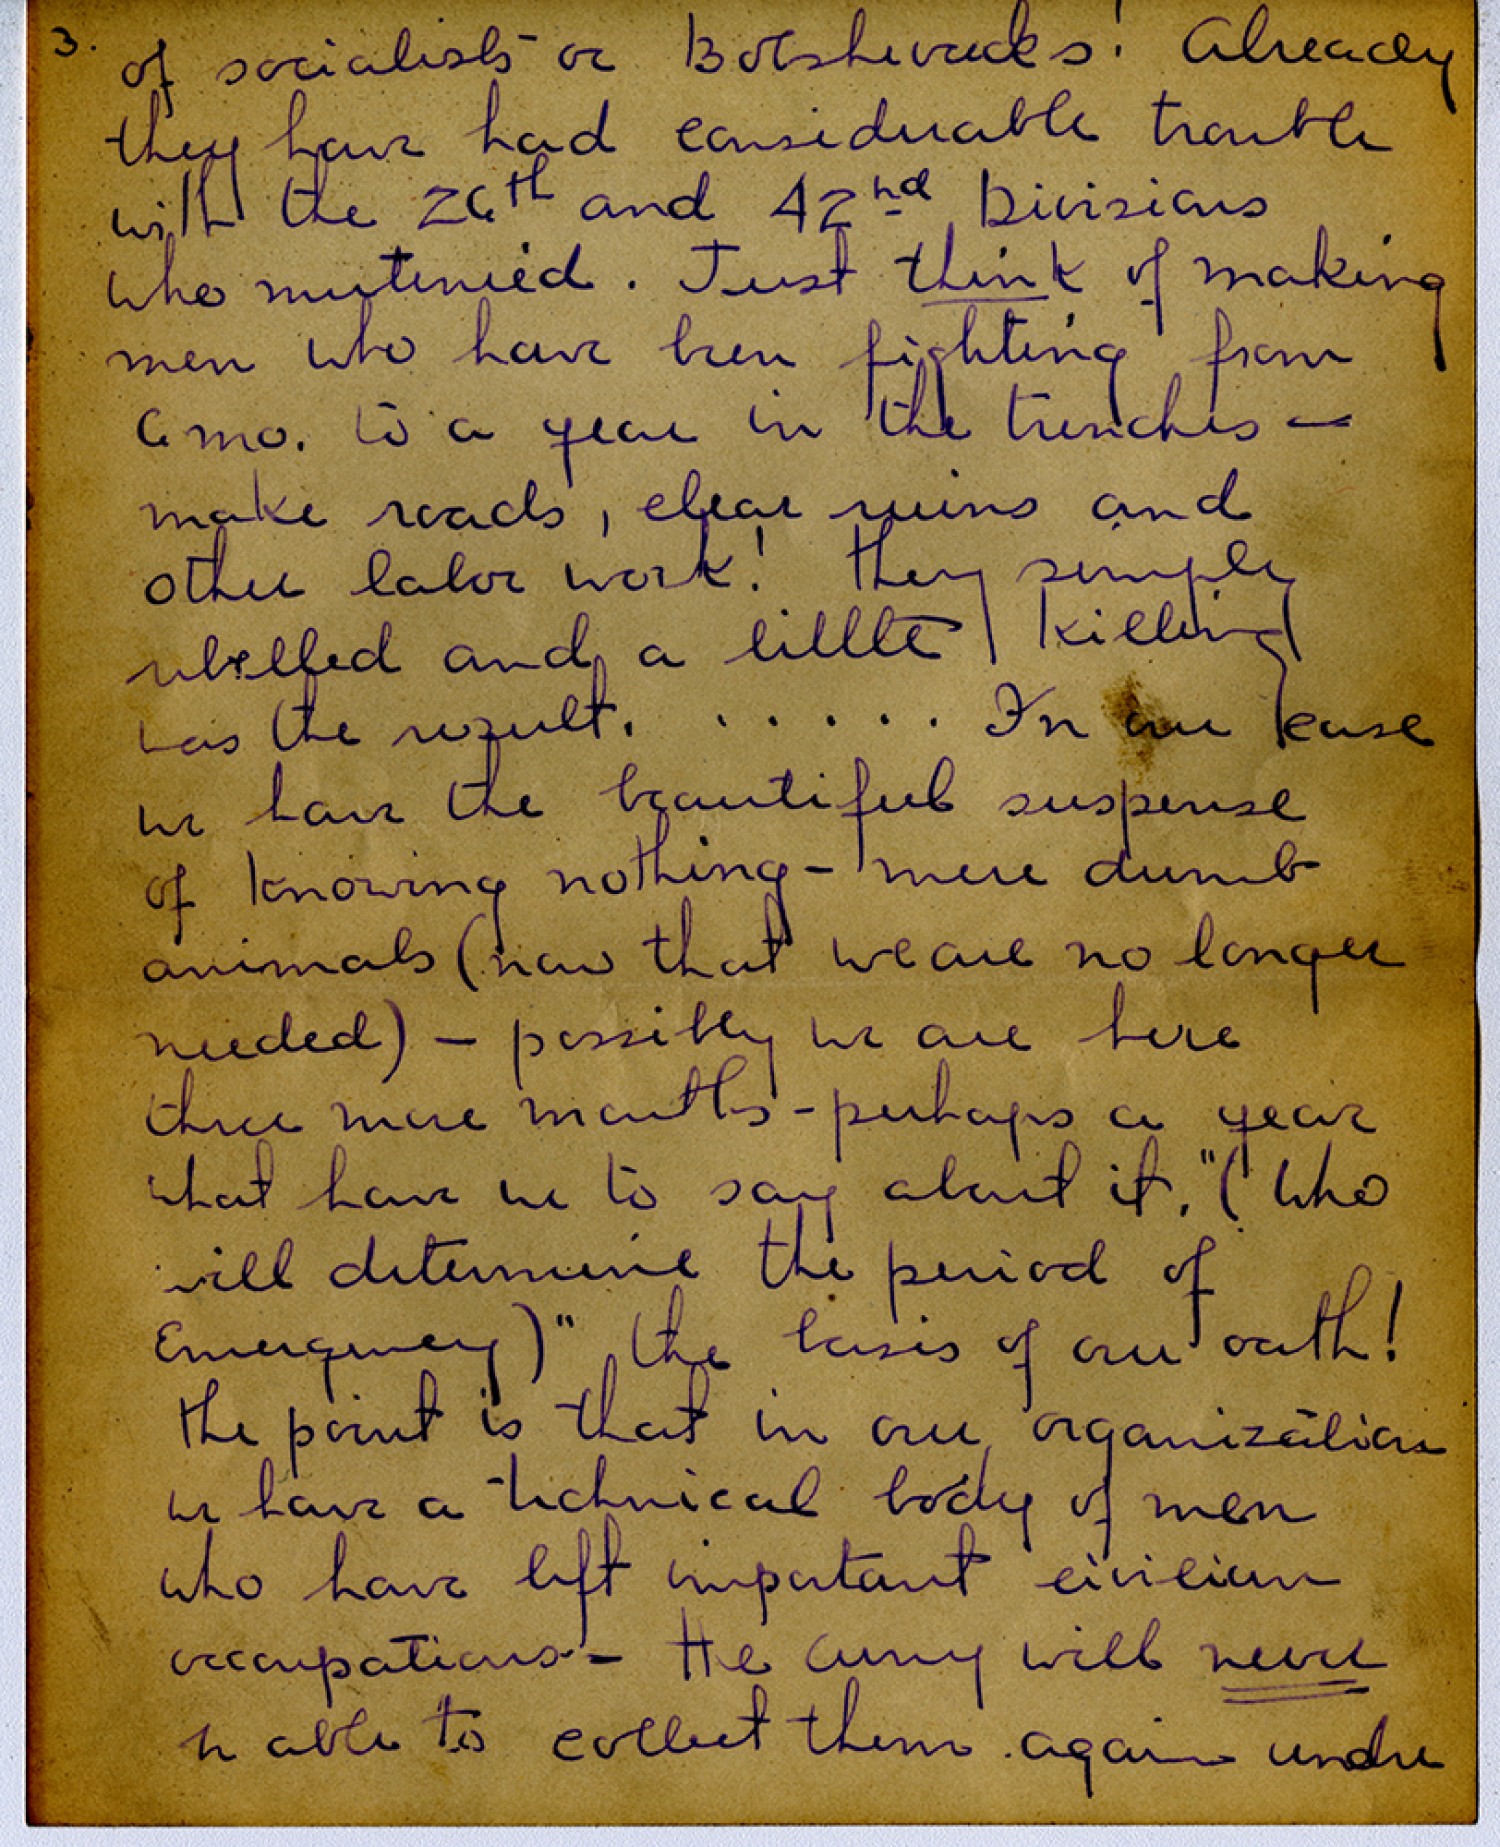 3.
of socialists or Bolshevicks! Already
they have had considerable trouble
with the 26th and 42nd Divisions
who mutenied. Just think of making
men who have been fighting from
6 mo. to a year in the trenches —
make roads, clear ruins and
other labor work! They simply
rebelled and a little killing
was the result. . . . . . . In our case
we have the beautiful suspense
of knowing nothing - mere dumb
animals (now that we are no longer
needed) - possibly we are here
three more months - perhaps a year
what have we to say about it. "(Who
will determine the period of
Emergency)" the basis of our oath!
The point is that in our organization
we have a technical body of men
who have left important civilian
occupations - The army will never
be able to collect them again under